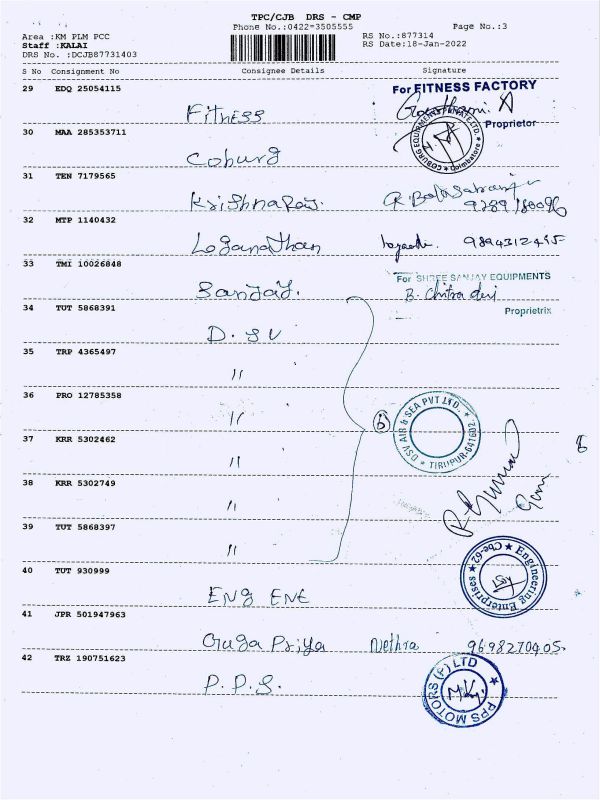 TPC/CJB DRS - CMP
Phone No.:0422-3505555
Page No.:3
Area :KM PLM PCC
Staff :KALAI
DRS No. :DCJB87731403
RS No.:877314
RS Date:18-Jan-2022
S No Consignment No Consignee Details Signature
29 EDQ 25054115 Fitness
For FITNESS FACTORY
Proprietor
30 MAA 285353711 Coburg
COBURG EQUIPMENTS PRIVATE LTD. * Coimbatore *
31 TEN 7179565
9289180096
32 MTP 1140432 Loganathan 9894312495
33 TMI 10026848 Sanjay.
For SHREE SANJAY EQUIPMENTS
B. Chitra devi
Proprietrix
34 TUT 5868391 D. SV
35 TRP 4365497 "
36 PRO 12785358 "
6
DSV AIR & SEA PVT LTD. * TIRUPUR-641602. *
37 KRR 5302462 "
38 KRR 5302749 "
39 TUT 5868397 "
40 TUT 930999 ENG ENt
Engineering Enterprises * Cbe-62 *
41 JPR 501947963 Guga Priya Nethra 9698270405.
42 TRZ 190751623 P.P.S.
PPS MOTORS (P) LTD *